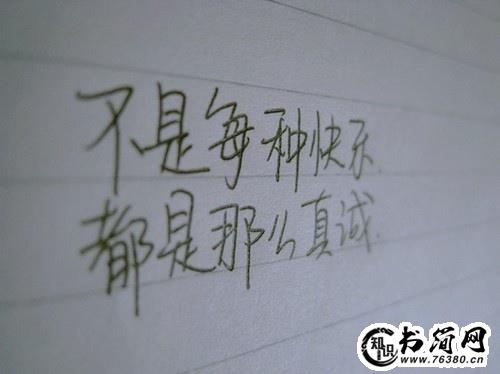 不是每种快乐
都是那么真诚
知识
书简网
www.76380.cn